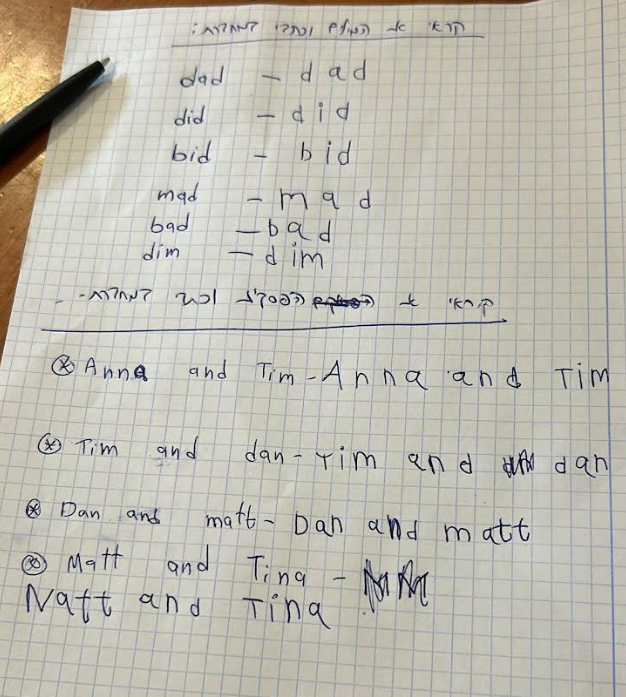 קראי את המילים וכתבי במחברת:
dad - dad
did - did
bid - bid
mad - mad
bad - bad
dim - dim
קראי את הפסקה וכתבי במחברת -
Anna and Tim - Anna and Tim
Tim and dan - Tim and dan
Dan and matt - Dan and matt
Matt and Tina -
Natt and Tina